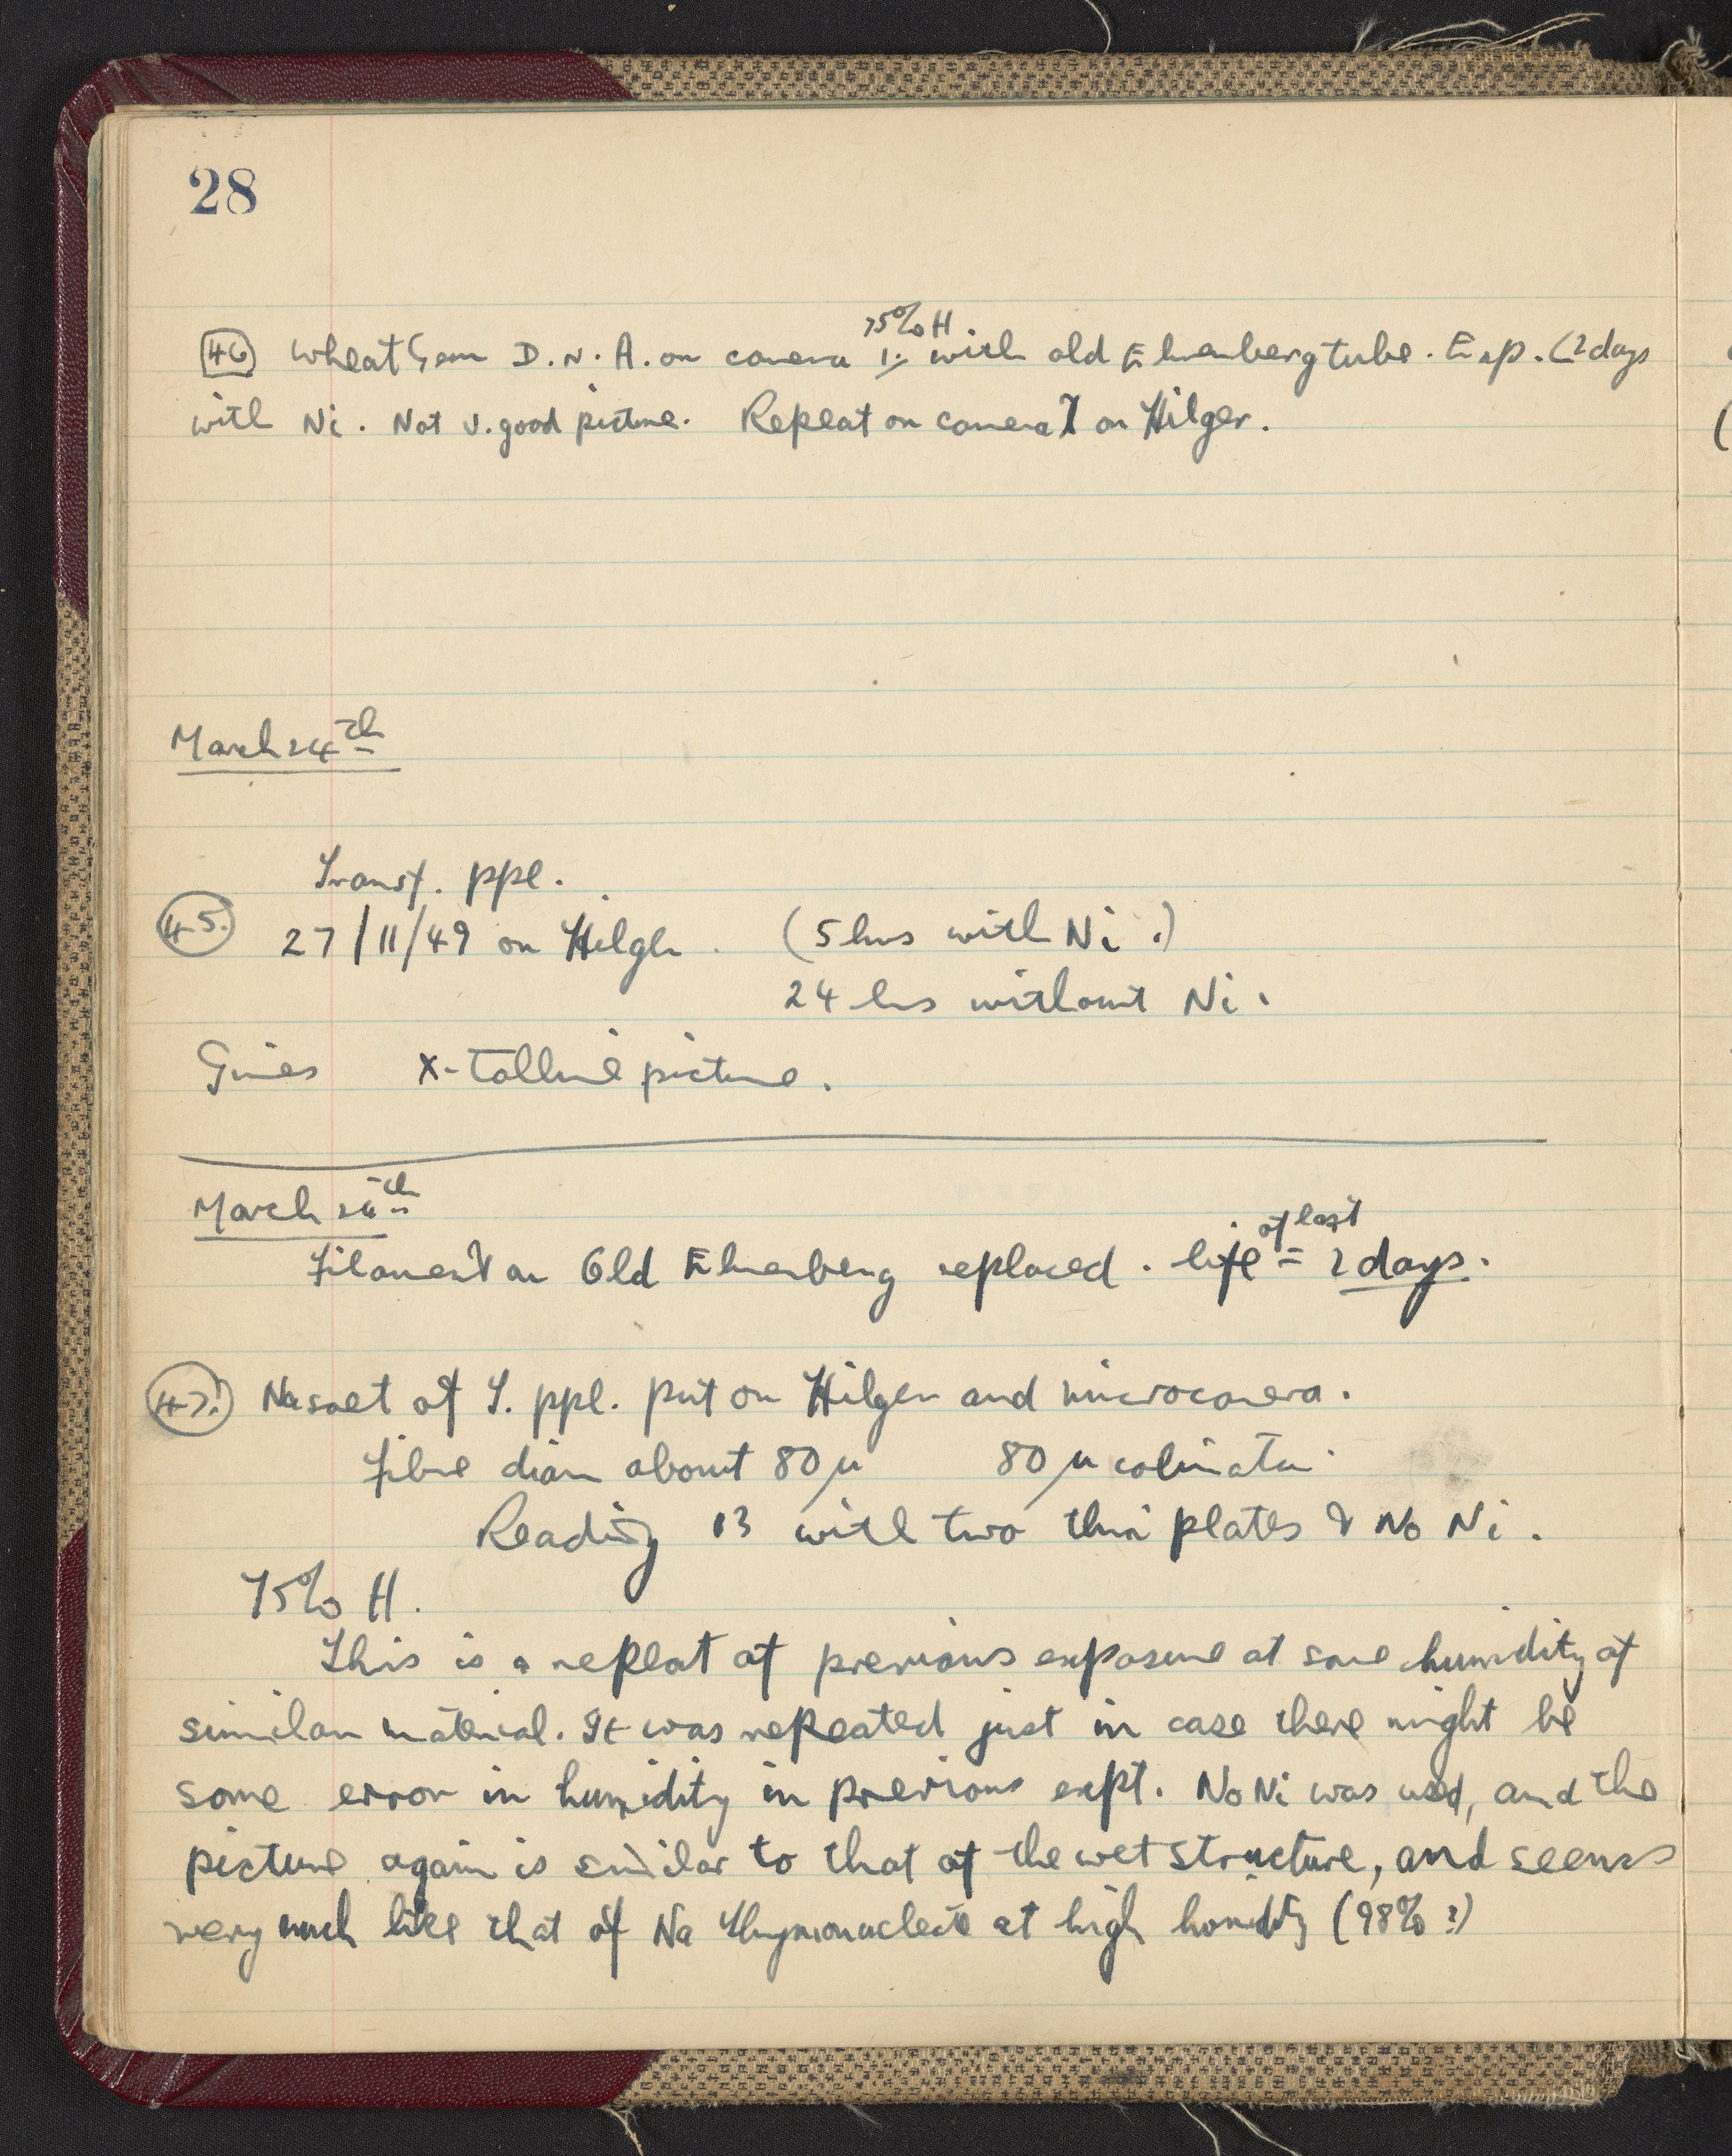 28
75% H
46 Wheat Germ D.N.A. on camera 1 with old Ehrenberg tube. Exp. (2 days
with Ni. Not v. good picture. Repeat on camera on Hilger.
March 24th
Transf. ppl.
45. 27/11/49 on Hilger. (5 hrs with Ni.)
24 hrs without Ni.
Gives X-talline picture.
March 26th
of last
Filament on Old Ehrenberg replaced. life = 2 days.
47. Na salt of T. ppl. put on Hilger and microcamera.
Fibre diam about 80μ 80μ colimator
Reading 13 with two thin plates & No Ni.
75% H.
This is a repeat of previous exposure at same humidity of
similar material. It was repeated just in case there might be
some error in humidity in previous expt. No Ni was used, and the
picture again is similar to that of the wet structure, and seems
very much like that of Na Thymonucleate at high humidity (98%?)